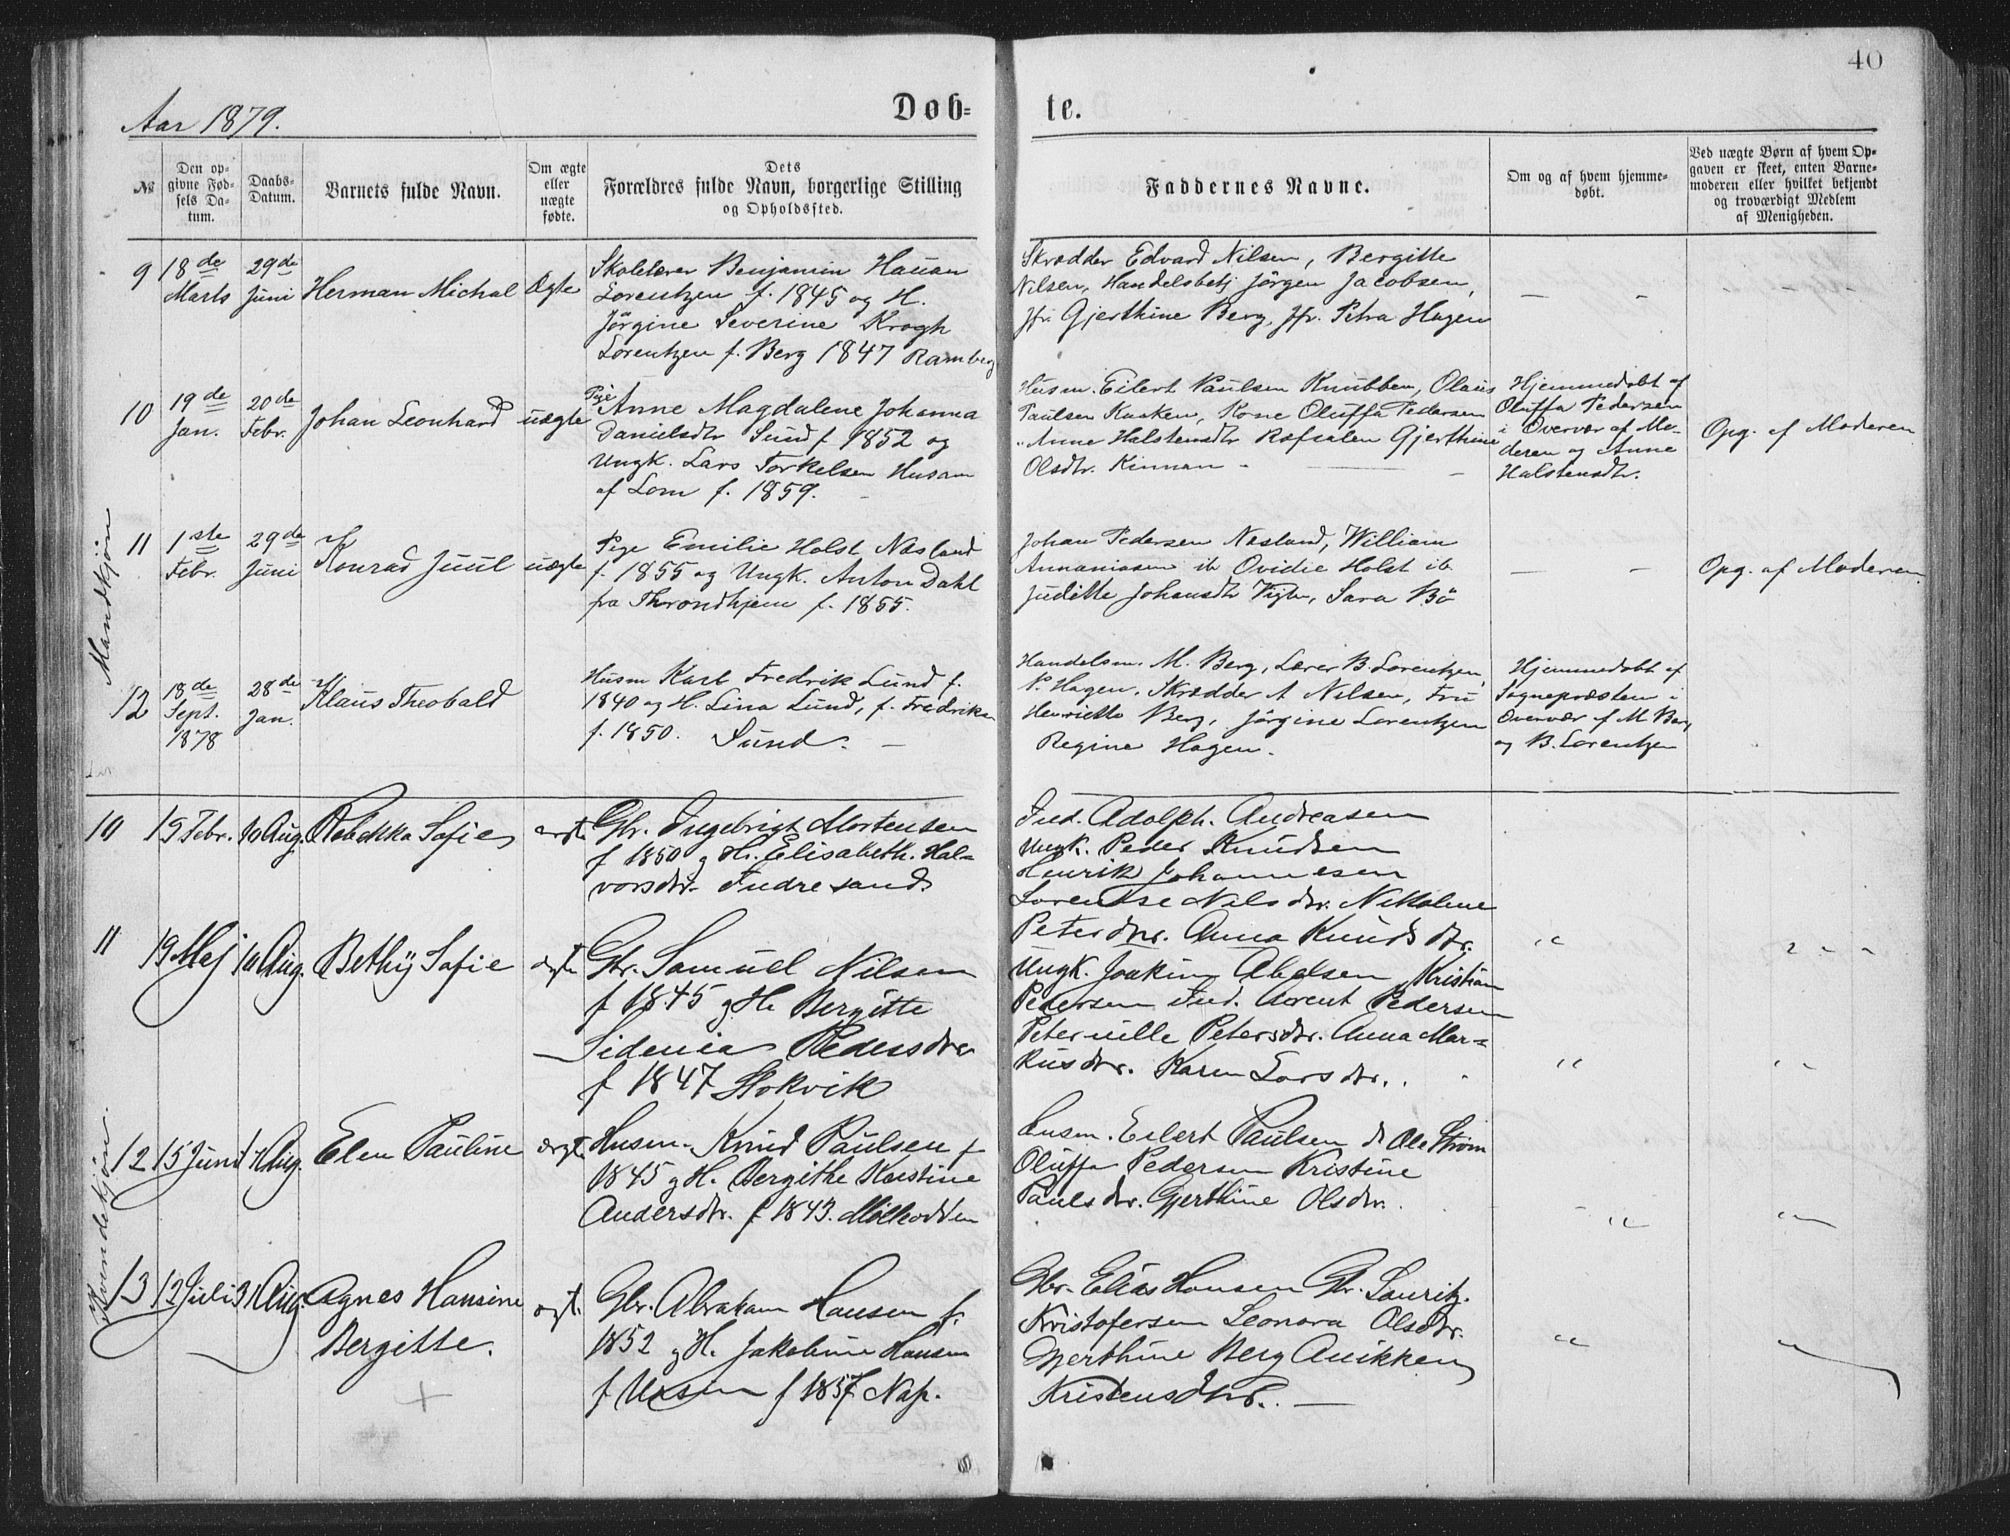 40
Aar 1879.
Döb-
te.
№
Den op-
givne Fød-
sels Da-
tum.
Daabs-
Datum.
Barnets fulde Navn.
Om ægte
eller
uægte
fødte.
Dets
Forældres fulde Navn, borgerlige Stilling
og Opholdssted.
Faddernes Navne.
Om og af hvem hjemme-
døbt.
Ved uægte Børn af hvem Op-
gaven er skeet, enten Barne-
moderen eller hvilket bekjendt
og troværdigt Medlem
af Menigheden.
Mandkjøn
9
18de
Marts
29de
Juni
Herman Michal
Ægte
Skolelærer Benjamin Hauan
Lorentzen f. 1845 og H.
Jörgine Severine Krogh
Lorentzen f. Berg 1847 Ramberg
Skrædder Edvard Nilsen, Bergitte
Nilsen, Handelsbetj Jörgen Jacobsen,
Jfr. Gjerthine Berg, Jfr. Petra Hagen
10
19de
Jan.
20de
Febr.
Johan Leonhard
uægte
Pige
Anne Magdalene Johanna
Danielsdtr Sund f 1852 og
Ungk. Lars Torkelsen Husam
af Lom f. 1859.
Husm. Eilert Paulsen Knubben, Olaus
Paulsen Kasken, Kone Oluffa Pedersen
" Anne Halstensdtr Ræfsalen Gjerthine
Olsdtr. Kinnan
Hjemmedøbt af
Oluffa Pedersen
i Overvær af Mo-
deren og Anne
Halstensdtr.
Opg. af Moderen
11
1ste
Febr.
29de
Juni
Konrad Juul
uægte
Pige Emilie Holst Næsland
f. 1855 og Ungk. Anton Dahl
fra Throndhjem f. 1855.
Johan Pedersen Næsland, William
Annaniasen ib Ovidie Holst ib.
Juditte Johansdtr Vigte, Sara Bö
Opg. af Moderen.
12
18de
Sept.
1878
28de
Jan.
Klaus Theobald
Husm Karl Fredrik Lund f.
1840 og H. Lina Lund, f. Fredriksen
f. 1850. Sund.
Handelsm. M. Berg, Lærer B. Lorentzen,
P. Hagen, Skrædder A Nilsen, Fru
Henriette Berg, Jörgine Lorentzen
Regine Hagen.
Hjemmedøbt af
Sognepræsten i
Overvær af M Berg
og B. Lorentzen
Kvindekjøn.
10
15 Febr.
10 Aug.
Rebekka Sofie
ægte
Gbr. Ingebrigt Mortensen
f 1850 g H. Elisabeth Hal-
vorsdtr. Indresand
Ind. Adolph. Andreasen
Ungk. Peder Knudsen
Henrik Johannesen
Lorentse Nilsdtr. Nikoline
Petersdtr. Anna Knudsdtr.
11
19 Mej
10 Aug.
Bethy Sofie
ægte
Gbr. Samuel Nilsen
f 1845 g H Bergitte
Sidenia Pedersdtr
f 1847 Stokvik
Ungk. Joakim Abelsen Kristian
Pedersen Ind. Arent Pedersen
Peternille Petersdtr. Anna Mar-
kusdtr. Karen Larsdtr.
12
15 Juni
Aug.
Elen Pauline
ægte
Husm. Knud Paulsen f
1845 g H. Bergithe Kristine
Andersdtr. f 1843. Mölkodden
Husm. Eilert Paulsen d Ole Ström
Oluffa Pedersen Kristine
Paulsdtr. Gjerthine Olsdtr.
13
12 Juli
31 Aug.
Agnes Hansine
Bergitte.
ægt.
Gbr. Abraham Hansen f.
1852 g H. Jakobine Hansen
f f 1857 Nap.
Gbr. Elias Hansen Gbr. Lauritz.
Kristofersen Leonora Olsdtr.
Gjerthine Berg Anikken
Kristensdtr.